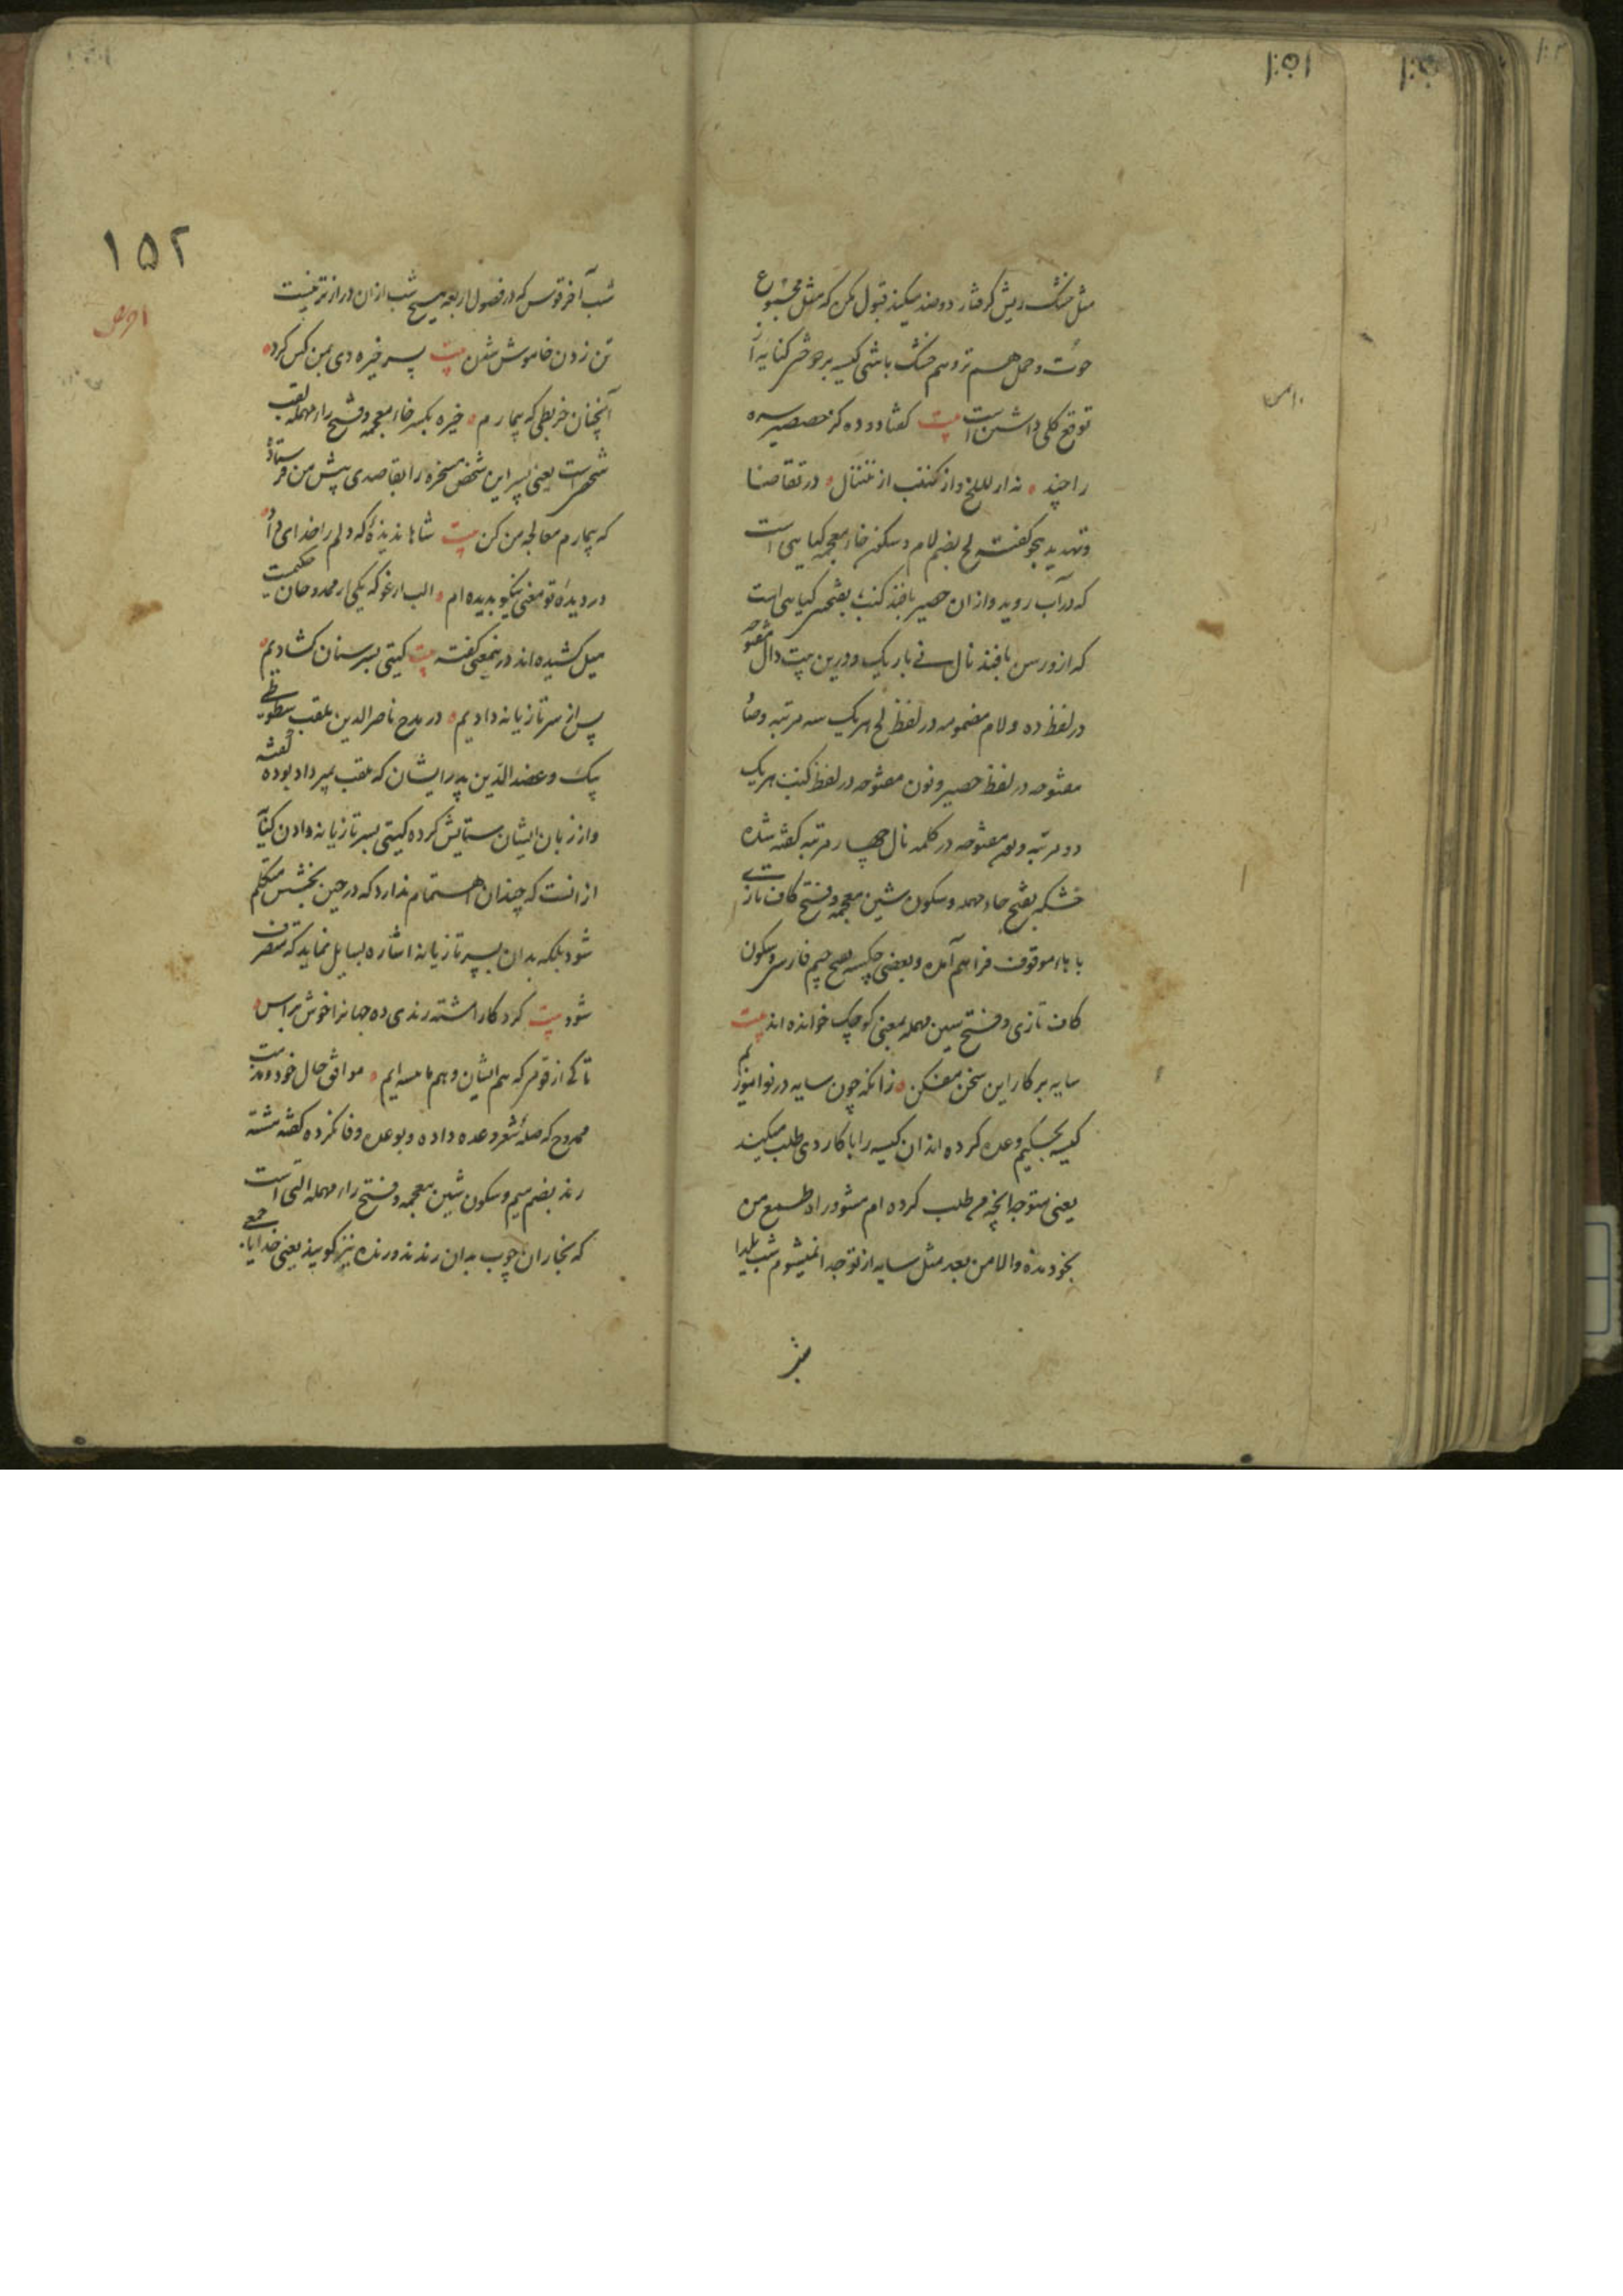 ۱۵۱
مثل خشک ریش گرفتار دوصد میکند قبول مکن که مثل مجموع
حوت و حمل هم تر و هم خشک باشی کیسه بر خوشر کنایه از
توقع کلی داشتن است بیت گفتا دو ده گز حصیر سره
را چند نه از للخ و از کنب از نال در تقاضا
و تهدید هجو گفته لخ بضم لام و سکون خاء معجمه گیاهی است
که در آب روید و ازان حصیر بافند کنب بفتحین گیاهی است
که ازو رسن بافند نال نی باریک و درین بیت دال مفتوحه
در لفظ ده و لام مضمومه در لفظ لخ هر یک سه مرتبه و صاد
مفتوحه در لفظ حصیر و نون مفتوحه در لفظ کنب هر یک
دو مرتبه و نون مفتوحه در کلمه نال چهار مرتبه گفته شده
بفتح خاء مهمله و سکون شین معجمه و فتح کاف تازی
با هاء موقوف فراهم آمده و بعضی چکسه بفتح جیم فارسی و سکون
کاف تازی و فتح سین مهمله بمعنی کوچک خوانده اند بیت
سایه بر کار این سخن مفکن زانکه چون سایه در تو آمیزم
کیسه بحکیم وعده کرده اند ان کیسه را با کاردی طلب میکند
یعنی متوجه انچه من طلب کرده ام مشو در راه طمع من
بخود مده والا من بعد مثل سایه از تو جدا نمیشوم شب یلدا
۱۵۲
شب آخر قوس که در فصول اربعه هیچ شب ازان درازتر نیست
تن زدن خاموش شدن بیت پسر خیره دی بمن کس کرد
آنچنان خربطی که بیمارم خیره بکسر خاء معجمه و فتح راء مهمله لقب
شخصی است یعنی پسر این شخص مسخره را بقاصدی پیش من فرستاد
که بیمارم معالجه من کن بیت شاها ندیدهٔ که دلم را خدای داد
در دیدهٔ تو معنی نیکو بدیده ام الب ارغو که یکی از ممدوحان حکیمست
میل کشیده اند درینمعنی گفته بیت گیتی بسر سنان گشادیم
پس از سر تازیانه دادیم در مدح ناصرالدین ملقب بطوطی
بیک و عضدالدین پدر ایشان که ملقب بمیر داد بوده گفته
و از زبان ایشان ستایش کرده گیتی بسر تازیانه دادن کنایه
از انست که چندان اهتمام ندارد که در حین بخشش متکلم
شود بلکه بدان سر تازیانه اشاره بسایل نماید که متصرف
شود بیت کردگارا مشته رندی ده جهانرا خوش تراس
تا کی از قومی که هم ایشان و هم ما تیشه ایم موافق حال خود و مذمت
ممدوح که صله شعر وعده داده و بوعده وفا نکرده گفته مشته
رند بضم میم و سکون شین معجمه و فتح راء مهمله التی است
که نجاران چوب بدان رندند و رنده نیز گویند یعنی خدایا جمعی